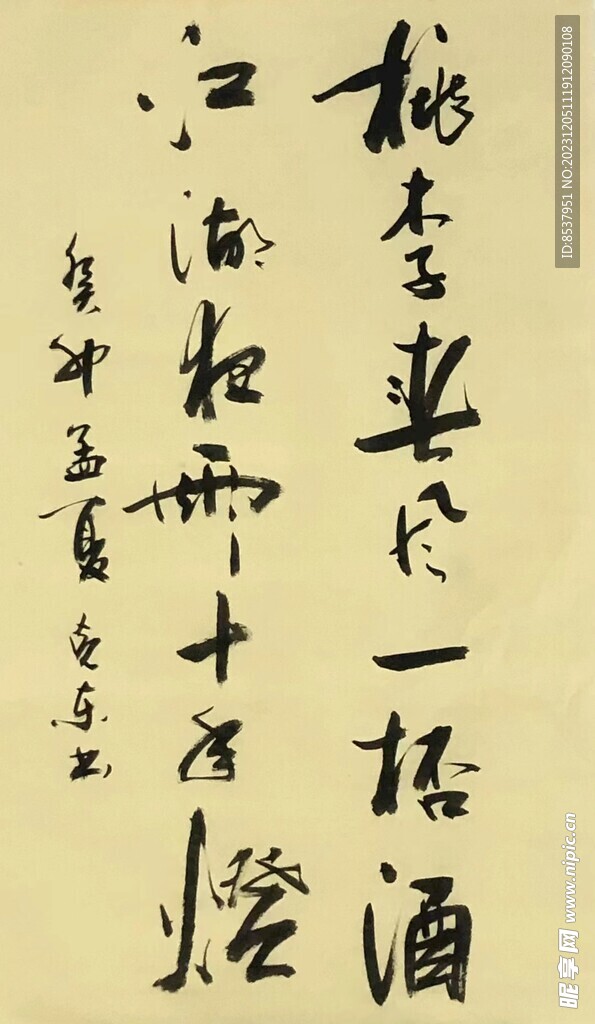 桃李春风一桮酒
江湖夜雨十年燈
癸卯孟夏 克东书
ID:8537951 NO:20231205111912090108
昵享网 www.nipic.cn